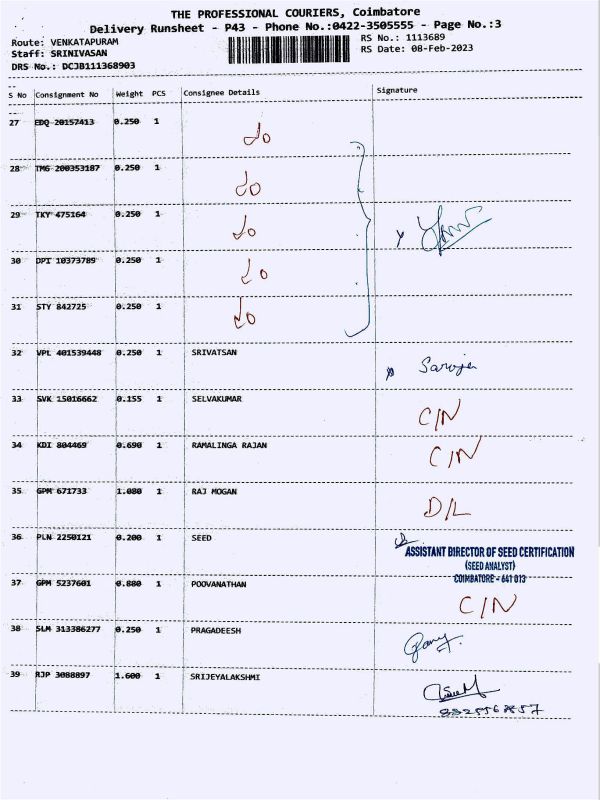 THE PROFESSIONAL COURIERS, Coimbatore
Delivery Runsheet - P43 - Phone No.:0422-3505555 - Page No.:3
Route: VENKATAPURAM
RS No.: 1113689
Staff: SRINIVASAN
RS Date: 08-Feb-2023
DRS No.: DCJB111368903
S No Consignment No Weight PCS Consignee Details Signature
27 EDQ 20157413 0.250 1
28 TMG 200353187 0.250 1
29 TKY 475164 0.250 1
30 DPI 10373789 0.250 1
31 STY 842725 0.250 1
32 VPL 401539448 0.250 1 SRIVATSAN Saroja
33 SVK 15016662 0.155 1 SELVAKUMAR C/N
34 KDI 804469 0.690 1 RAMALINGA RAJAN C/N
35 GPM 671733 1.080 1 RAJ MOGAN D/L
36 PLN 2250121 0.200 1 SEED
ASSISTANT DIRECTOR OF SEED CERTIFICATION
(SEED ANALYST)
COIMBATORE - 641 013
37 GPM 5237601 0.880 1 POOVANATHAN C/N
38 SLM 313386277 0.250 1 PRAGADEESH
39 RJP 3088897 1.600 1 SRIJEYALAKSHMI